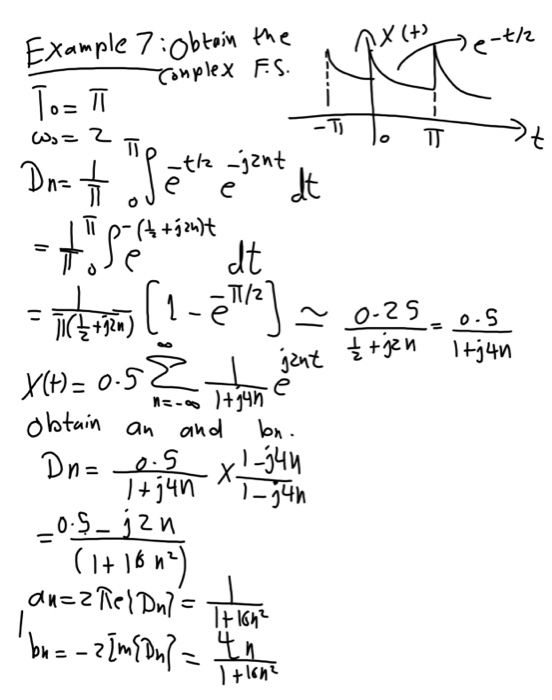 Example 7: Obtain the
Complex F.S.
X(t)
e^{-t/2}
-π 0 π t
T₀ = π
ω₀ = 2
Dn = 1/π ₀∫^π e^{-t/2} e^{-j2nt} dt
= 1/π ₀∫^π e^{-(1/2+j2n)t} dt
= 1/(π(1/2+j2n)) [1 - e^{-π/2}] ≃ 0.25/(1/2+j2n) = 0.5/(1+j4n)
X(t) = 0.5 ∑_{n=-∞}^{∞} 1/(1+j4n) e^{j2nt}
obtain an and bn.
Dn = 0.5/(1+j4n) × (1-j4n)/(1-j4n)
= (0.5 - j2n)/(1+16n²)
an = 2Re{Dn} = 1/(1+16n²)
bn = -2Im{Dn} = 4n/(1+16n²)